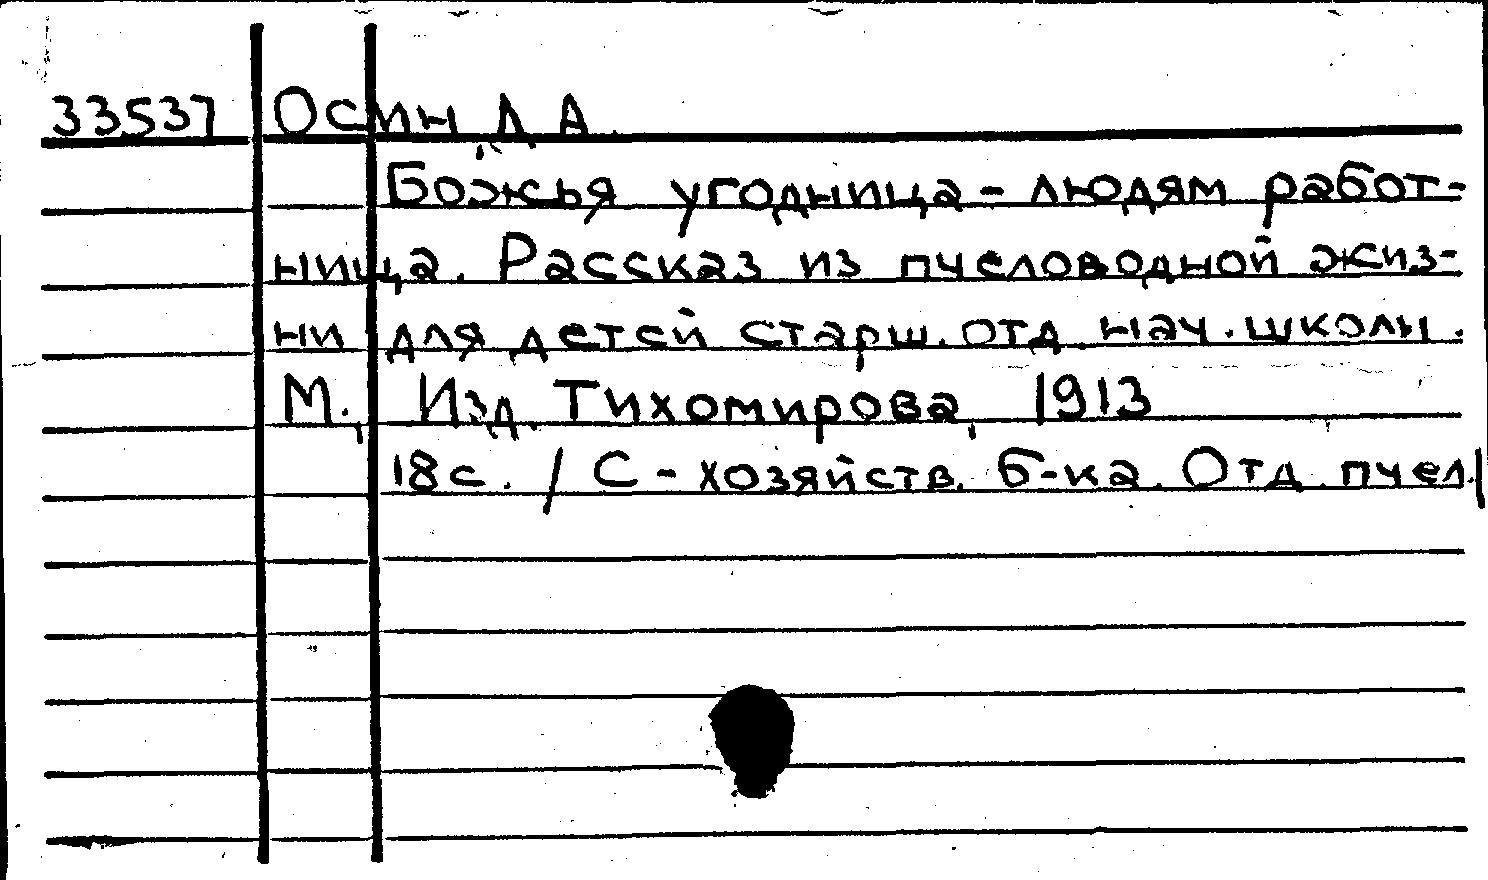 33537 Осин, Д А.
Божья угодница - людям работ-
ница. Рассказ из пчеловодной жиз-
ни для детей старш. отд. нач. школы.
М., Изд. Тихомирова, 1913
18с. / С-хозяйств. б-ка. Отд. пчел./